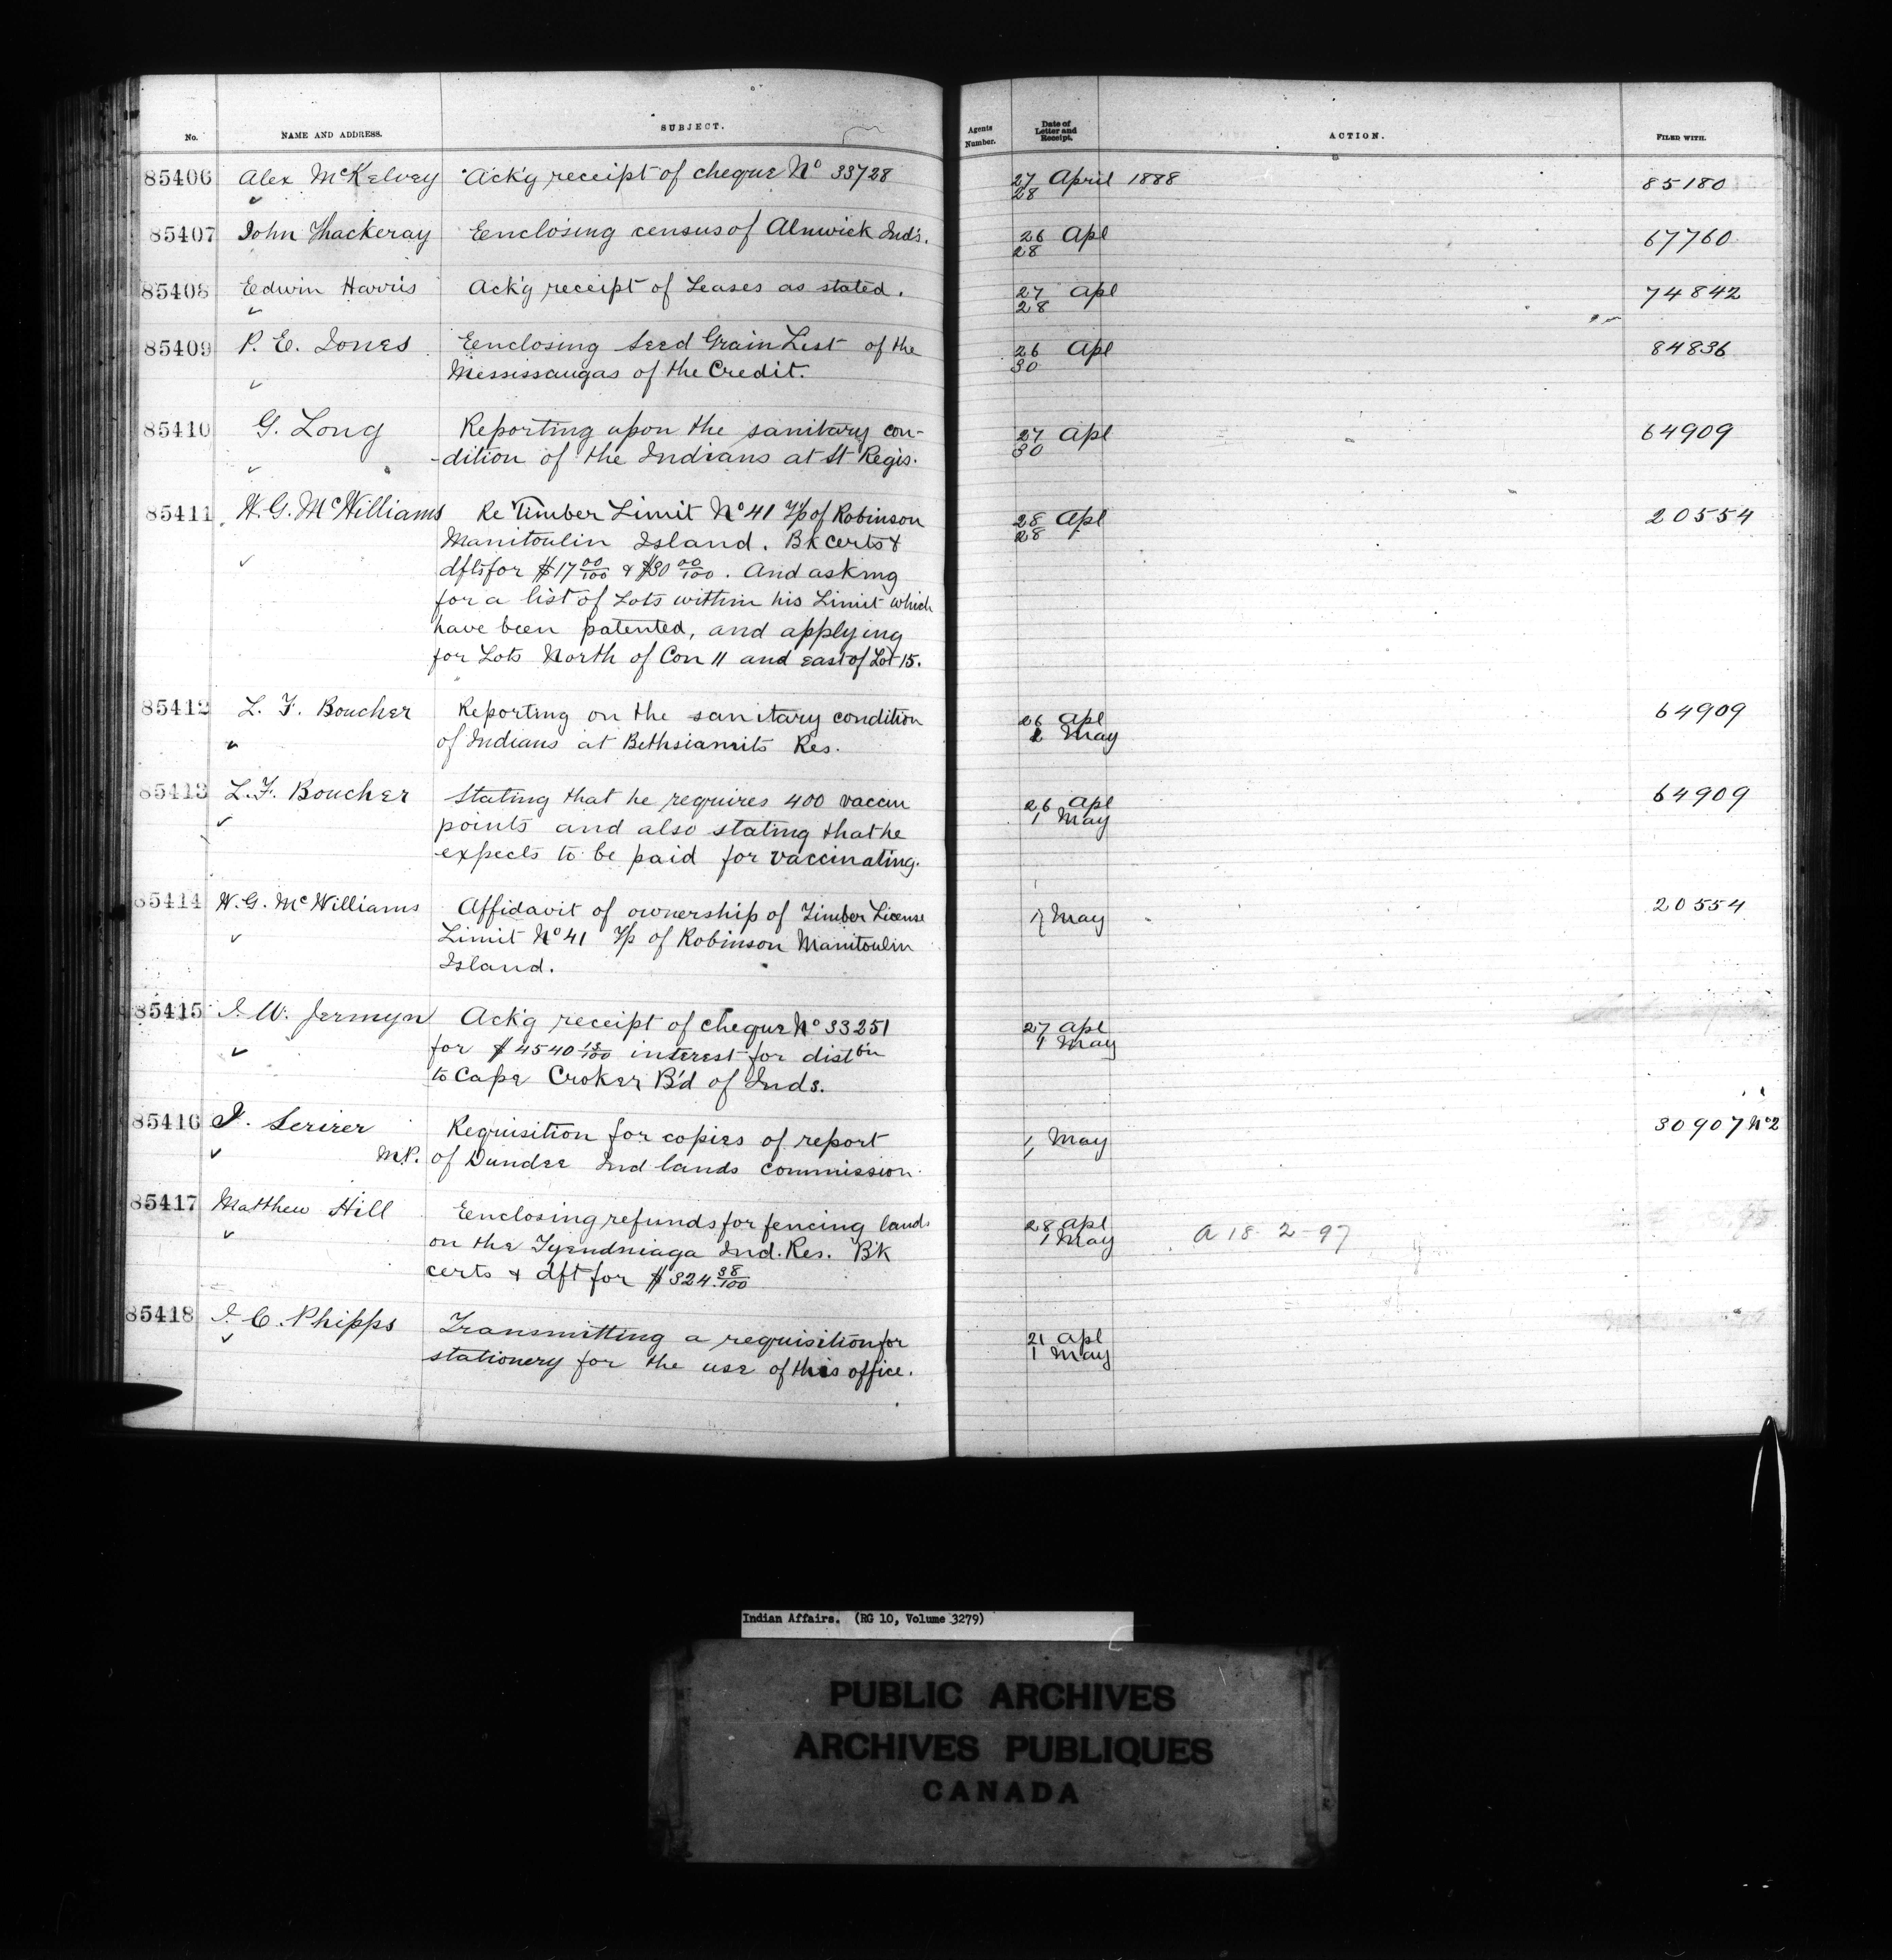 No. NAME AND ADDRESS. SUBJECT. Agents Number. Date of Letter and Receipt. ACTION. FILED WITH.
85406 Alex McKelvey Ack'g receipt of cheque No 33728 27 April 1888 85180
28
85407 John Thackeray Eenclosing census of Alnwick Ind's. 26 Apl 67760
28
85408 Edwin Harris Ack'g receipt of Leases as stated. 27 Apl 74842
28
85409 P. E. Jones Eenclosing Seed Grain List of the 26 Apl 84836
Mississaugas of the Credit. 30
85410 G. Long Reporting upon the sanitary con- 27 Apl 64909
-dition of the Indians at St Regis. 30
85411 W. G. McWilliams Re Timber Limit No 41 T/p of Robinson 28 Apl 20554
Manitoulin Island. Bk certs & 28
dfts for $17 00/100 & $30 00/100. And asking
for a list of Lots within his Limit which
have been patented, and applying
for Lots North of Con 11 and east of Lot 15.
85412 L. F. Boucher Reporting on the sanitary condition 26 Apl 64909
of Indians at Bethsiamits Res. May
85413 L. F. Boucher Stating that he requires 400 vaccin 26 Apl 64909
points and also stating that he 1 May
expects to be paid for vaccinating.
85414 W. G. McWilliams Affidavit of ownership of Timber License 1/1 May 20554
Limit No 41 T/p of Robinson Manitoulin
Island.
85415 J. W. Jermyn Ack'g receipt of cheque No 33251 27 Apl
for $4540 13/100 interest for distbn 1 May
to Cape Croker B'd of Inds.
85416 Requisition for copies of report 1/1 May 30907 No 2
M.P. of Dundee Ind lands commission.
85417 Matthew Hill Eenclosing refunds for fencing lands 28 Apl A 18-2-97
on the Tyendniaga Ind. Res. B'k 1 May
certs & dft for $324 38/100
85418 J. C. Phipps Transmitting a requisition for 21 Apl
stationery for the use of this office. 1 May
Indian Affairs. (RG 10, Volume 3279)
PUBLIC ARCHIVES
ARCHIVES PUBLIQUES
CANADA